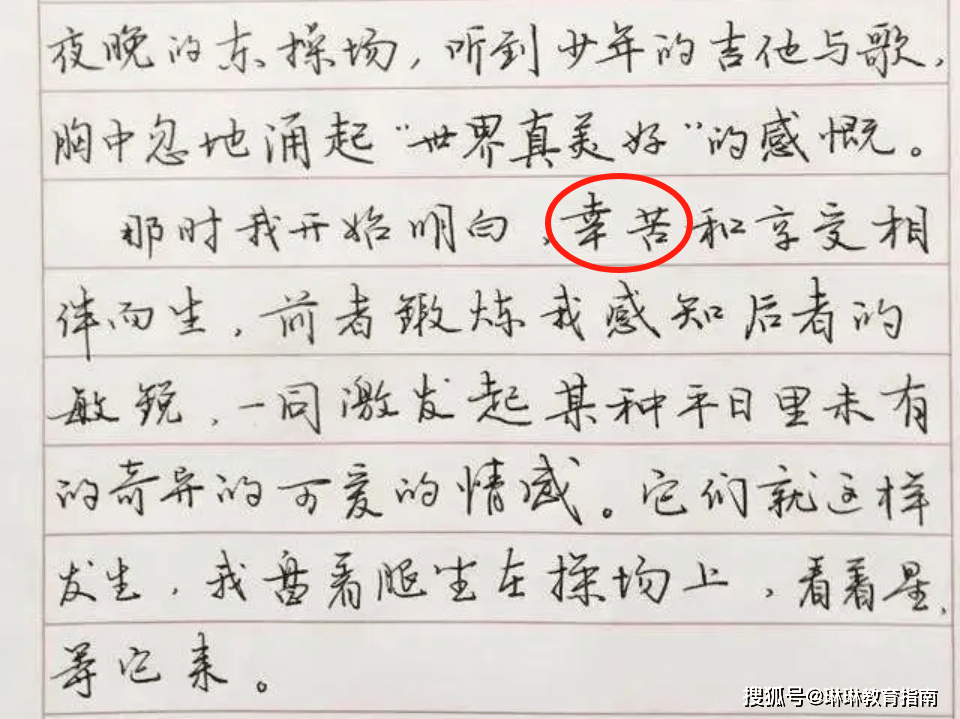 夜晚的东操场，听到少年的吉他与歌，
胸中忽地涌起“世界真美好”的感慨。
那时我开始明白，幸苦和享受相
伴而生，前者锻炼我感知后者的
敏锐，一同激发起某种平日里未有
的奇异的可爱的情感。它们就这样
发生，我盘着腿坐在操场上，看着星，
等它来。
搜狐号@琳琳教育指南